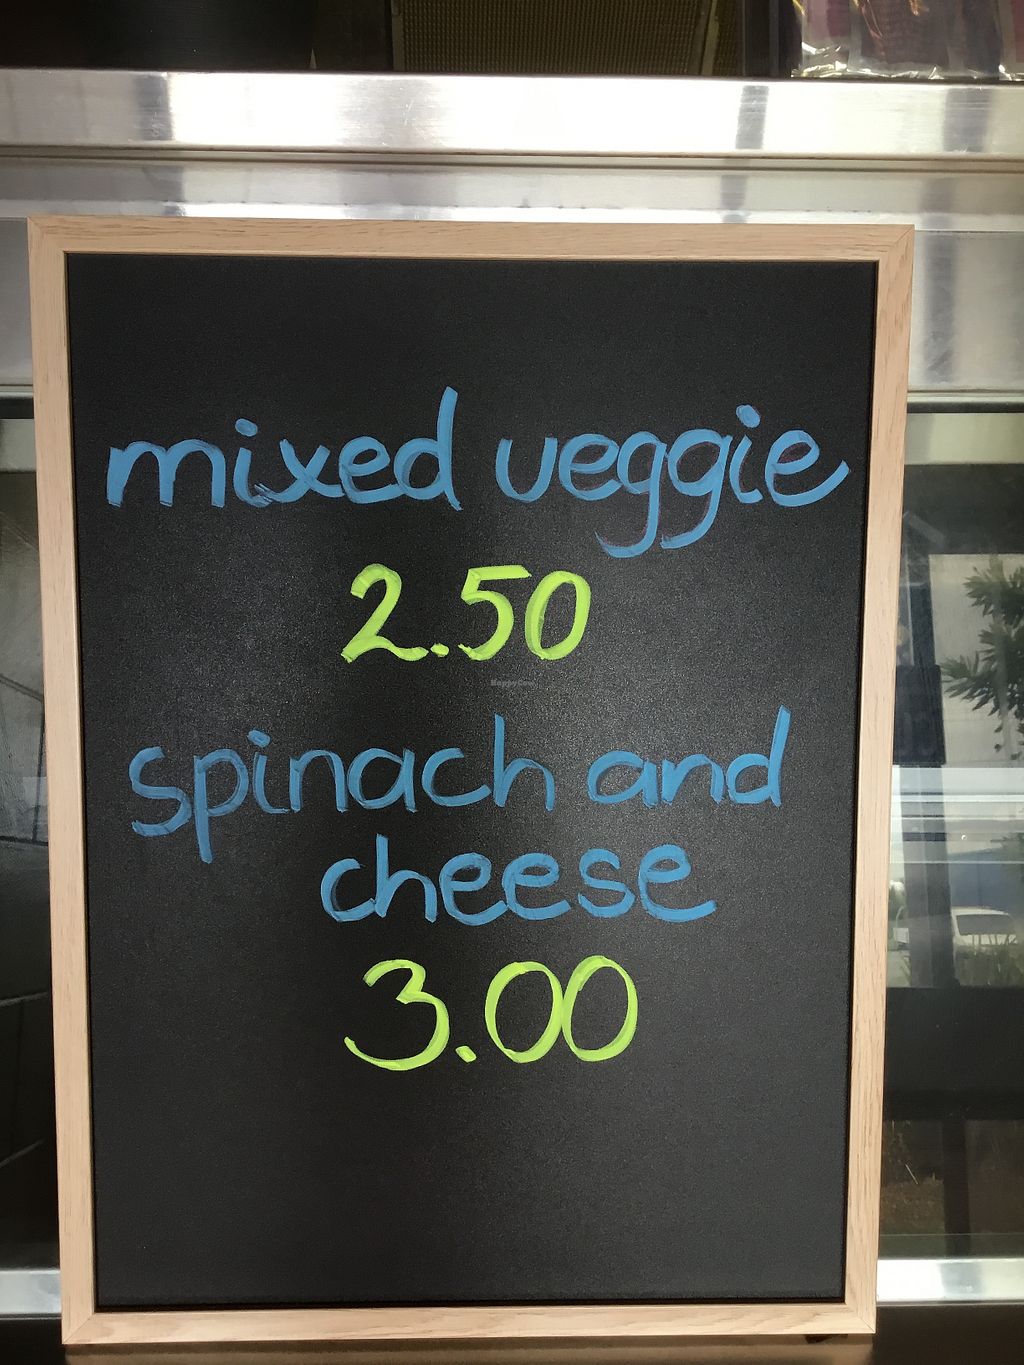 mixed veggie
2.50
HappyCow
spinach and
cheese
3.00